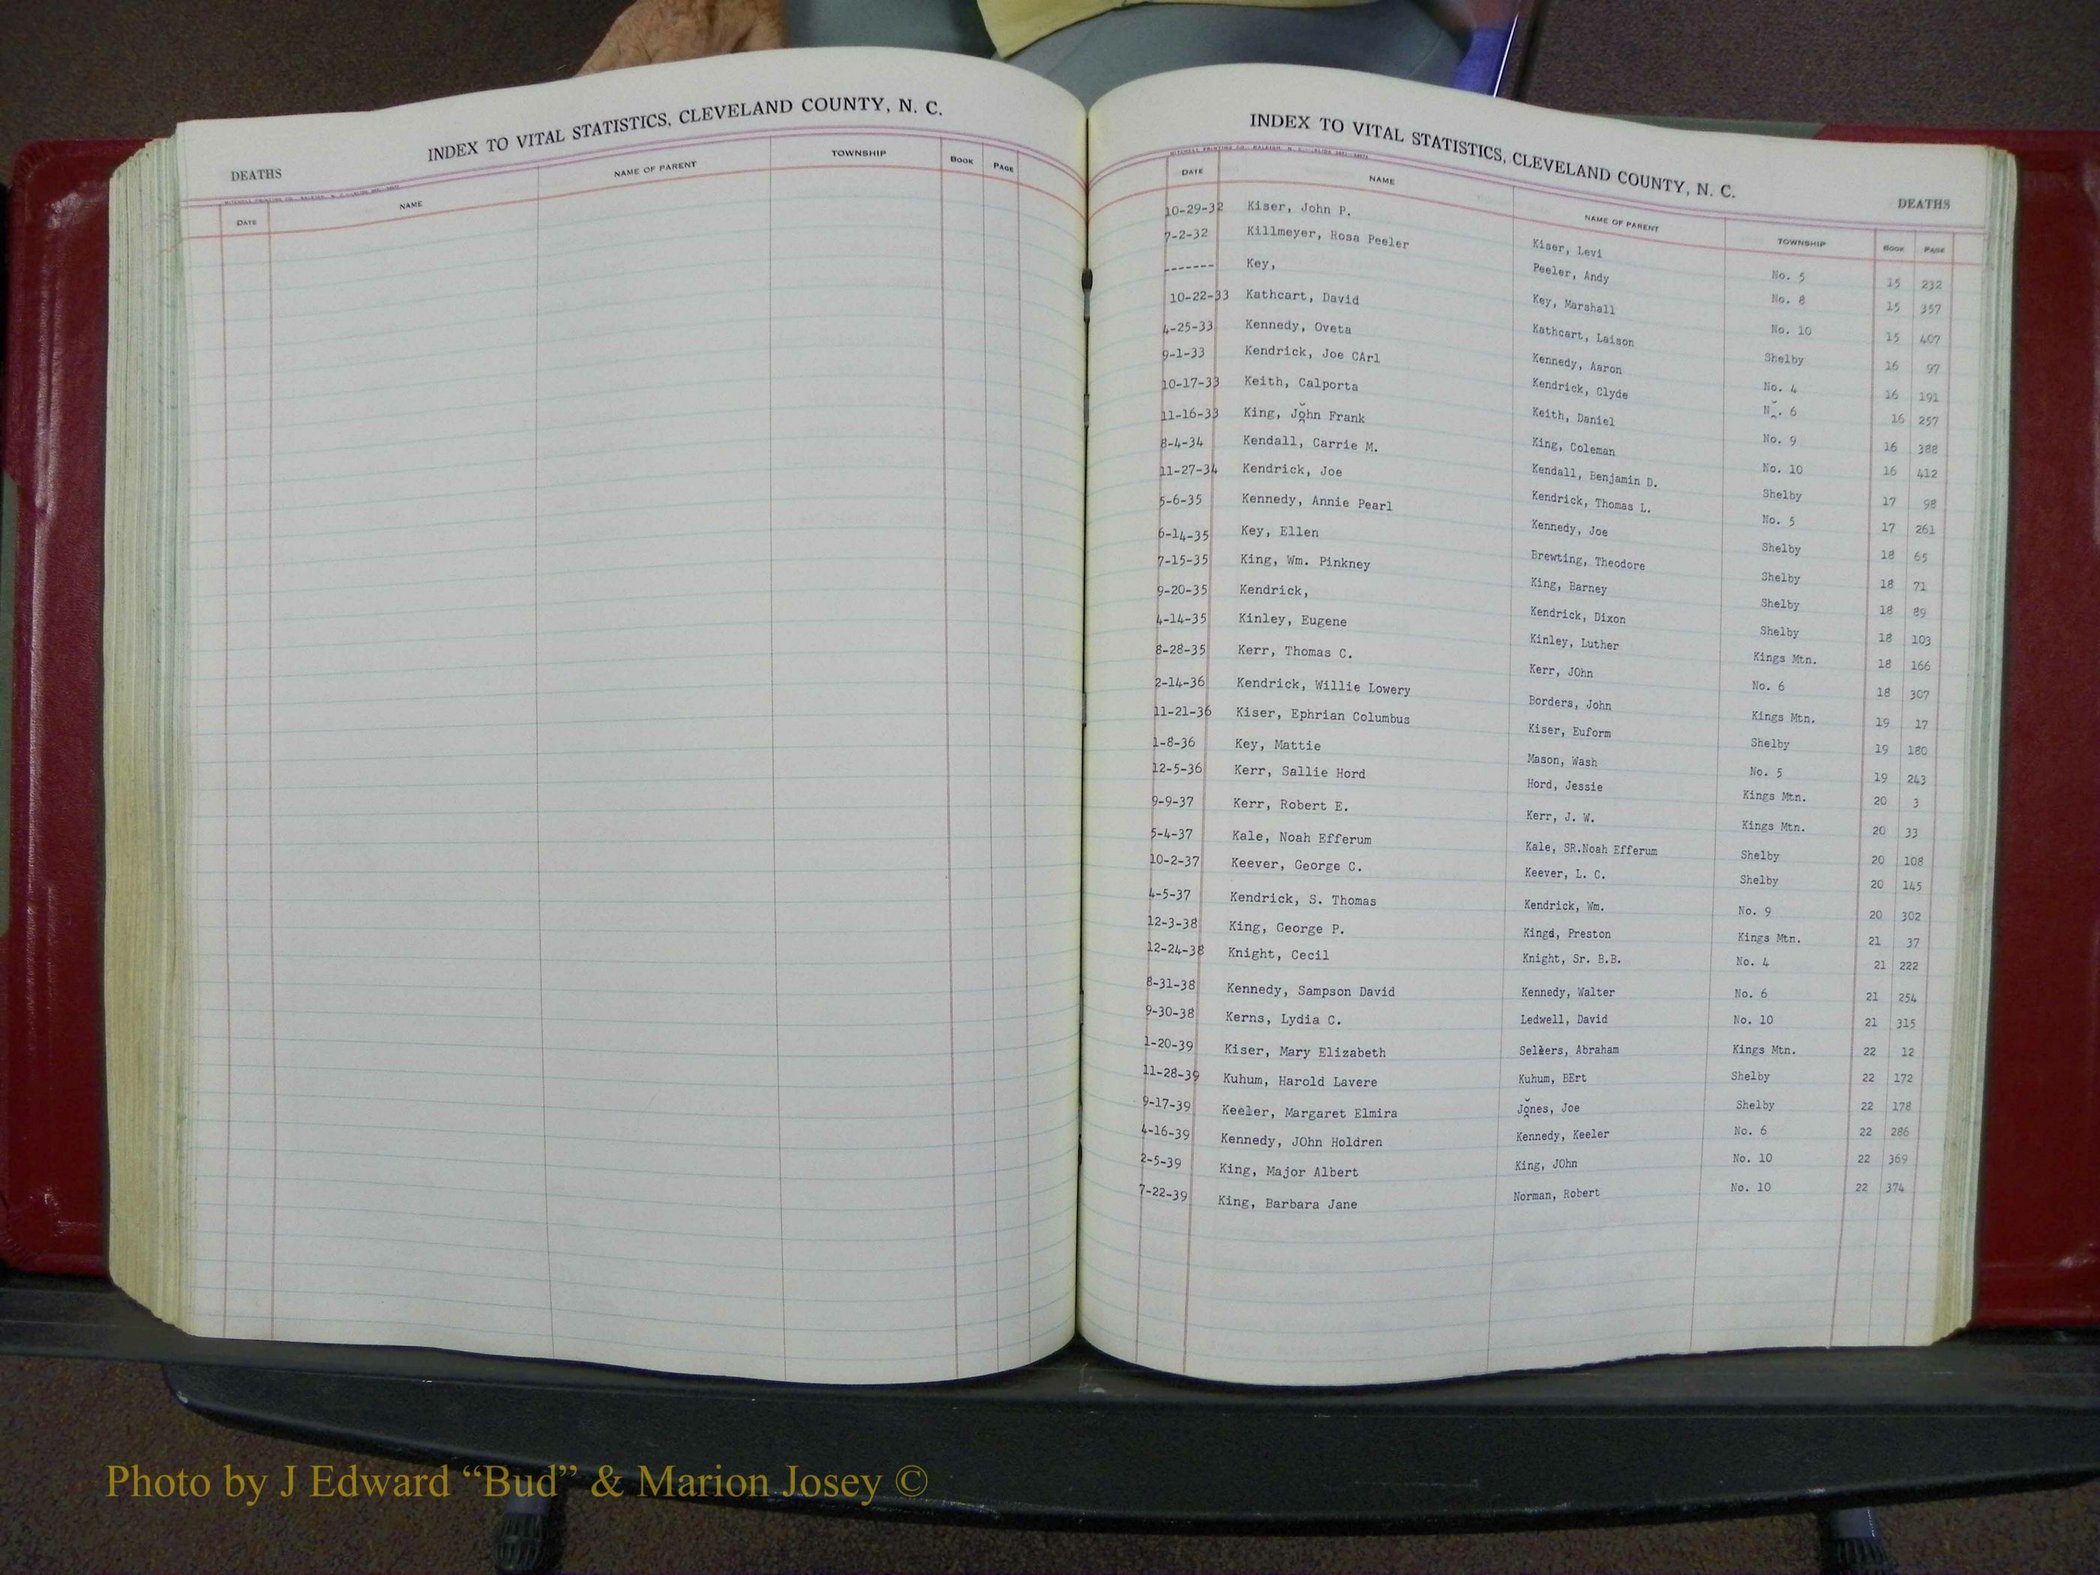 INDEX TO VITAL STATISTICS, CLEVELAND COUNTY, N. C.
DEATHS
DATE NAME NAME OF PARENT TOWNSHIP BOOK PAGE
INDEX TO VITAL STATISTICS, CLEVELAND COUNTY, N. C.
DEATHS
DATE NAME NAME OF PARENT TOWNSHIP BOOK PAGE
10-29-32 Kiser, John P. Kiser, Levi No. 5 15 232
7-2-32 Killmeyer, Rosa Peeler Peeler, Andy No. 8 15 357
------- Key, Key, Marshall No. 10 15 407
10-22-33 Kathcart, David Kathcart, Laison Shelby 16 97
4-25-33 Kennedy, Oveta Kennedy, Aaron No. 4 16 191
9-1-33 Kendrick, Joe CArl Kendrick, Clyde No. 6 16 257
10-17-33 Keith, Calporta Keith, Daniel No. 9 16 388
11-16-33 King, John Frank King, Coleman No. 10 16 412
8-4-34 Kendall, Carrie M. Kendall, Benjamin D. Shelby 17 98
11-27-34 Kendrick, Joe Kendrick, Thomas L. No. 5 17 261
5-6-35 Kennedy, Annie Pearl Kennedy, Joe Shelby 18 65
6-14-35 Key, Ellen Brewting, Theodore Shelby 18 71
7-15-35 King, Wm. Pinkney King, Barney Shelby 18 89
9-20-35 Kendrick, Kendrick, Dixon Shelby 18 103
4-14-35 Kinley, Eugene Kinley, Luther Kings Mtn. 18 166
8-28-35 Kerr, Thomas C. Kerr, JOhn No. 6 18 307
2-14-36 Kendrick, Willie Lowery Borders, John Kings Mtn. 19 17
11-21-36 Kiser, Ephrian Columbus Kiser, Euform Shelby 19 180
1-8-36 Key, Mattie Mason, Wash No. 5 19 243
12-5-36 Kerr, Sallie Hord Hord, Jessie Kings Mtn. 20 3
9-9-37 Kerr, Robert E. Kerr, J. W. Kings Mtn. 20 33
5-4-37 Kale, Noah Efferum Kale, SR.Noah Efferum Shelby 20 108
10-2-37 Keever, George C. Keever, L. C. Shelby 20 145
4-5-37 Kendrick, S. Thomas Kendrick, Wm. No. 9 20 302
12-3-38 King, George P. King, Preston Kings Mtn. 21 37
12-24-38 Knight, Cecil Knight, Sr. B.B. No. 4 21 222
8-31-38 Kennedy, Sampson David Kennedy, Walter No. 6 21 254
9-30-38 Kerns, Lydia C. Ledwell, David No. 10 21 315
1-20-39 Kiser, Mary Elizabeth Sellers, Abraham Kings Mtn. 22 12
11-28-39 Kuhum, Harold Lavere Kuhum, BErt Shelby 22 172
9-17-39 Keeler, Margaret Elmira Jones, Joe Shelby 22 178
4-16-39 Kennedy, JOhn Holdren Kennedy, Keeler No. 6 22 286
2-5-39 King, Major Albert King, JOhn No. 10 22 369
7-22-39 King, Barbara Jane Norman, Robert No. 10 22 374
Photo by J Edward “Bud” & Marion Josey ©